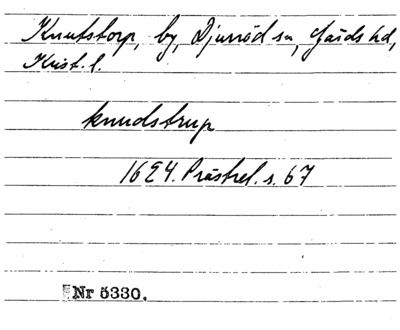 Knutstorp, by, Djurröd sn, Gärds hd,
Krist. l.
knudstrup
1624. Prästrel. s. 67
Nr 5330.